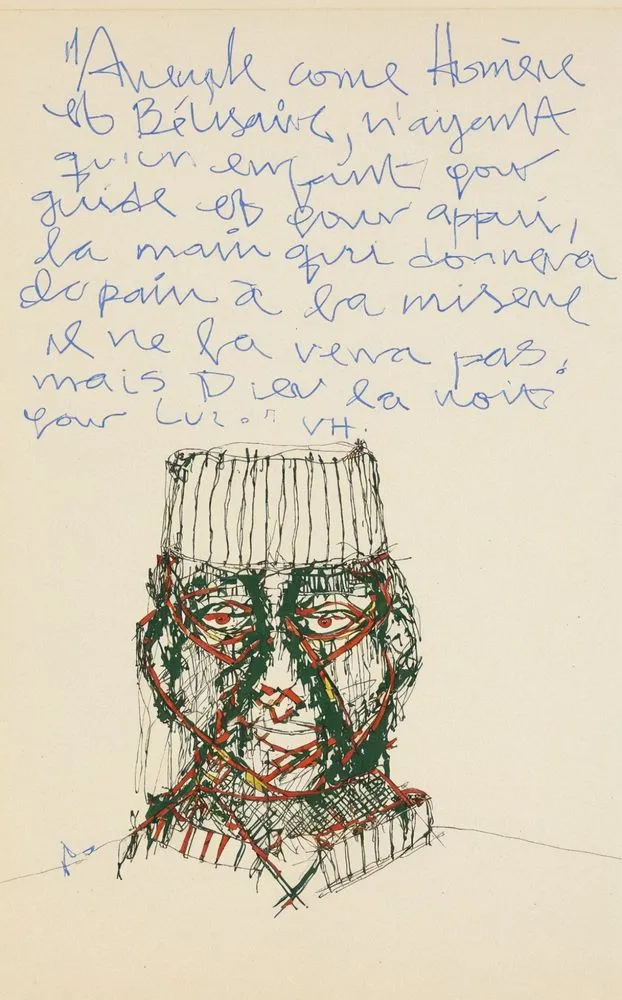 "Aveugle come Homère
et Bélisaire, n'ayant
qu'un enfant pour
guide et pour appui,
la main qui donnera
du pain à la misère
il ne la verra pas,
mais Dieu la voit
pour Lui." VH.